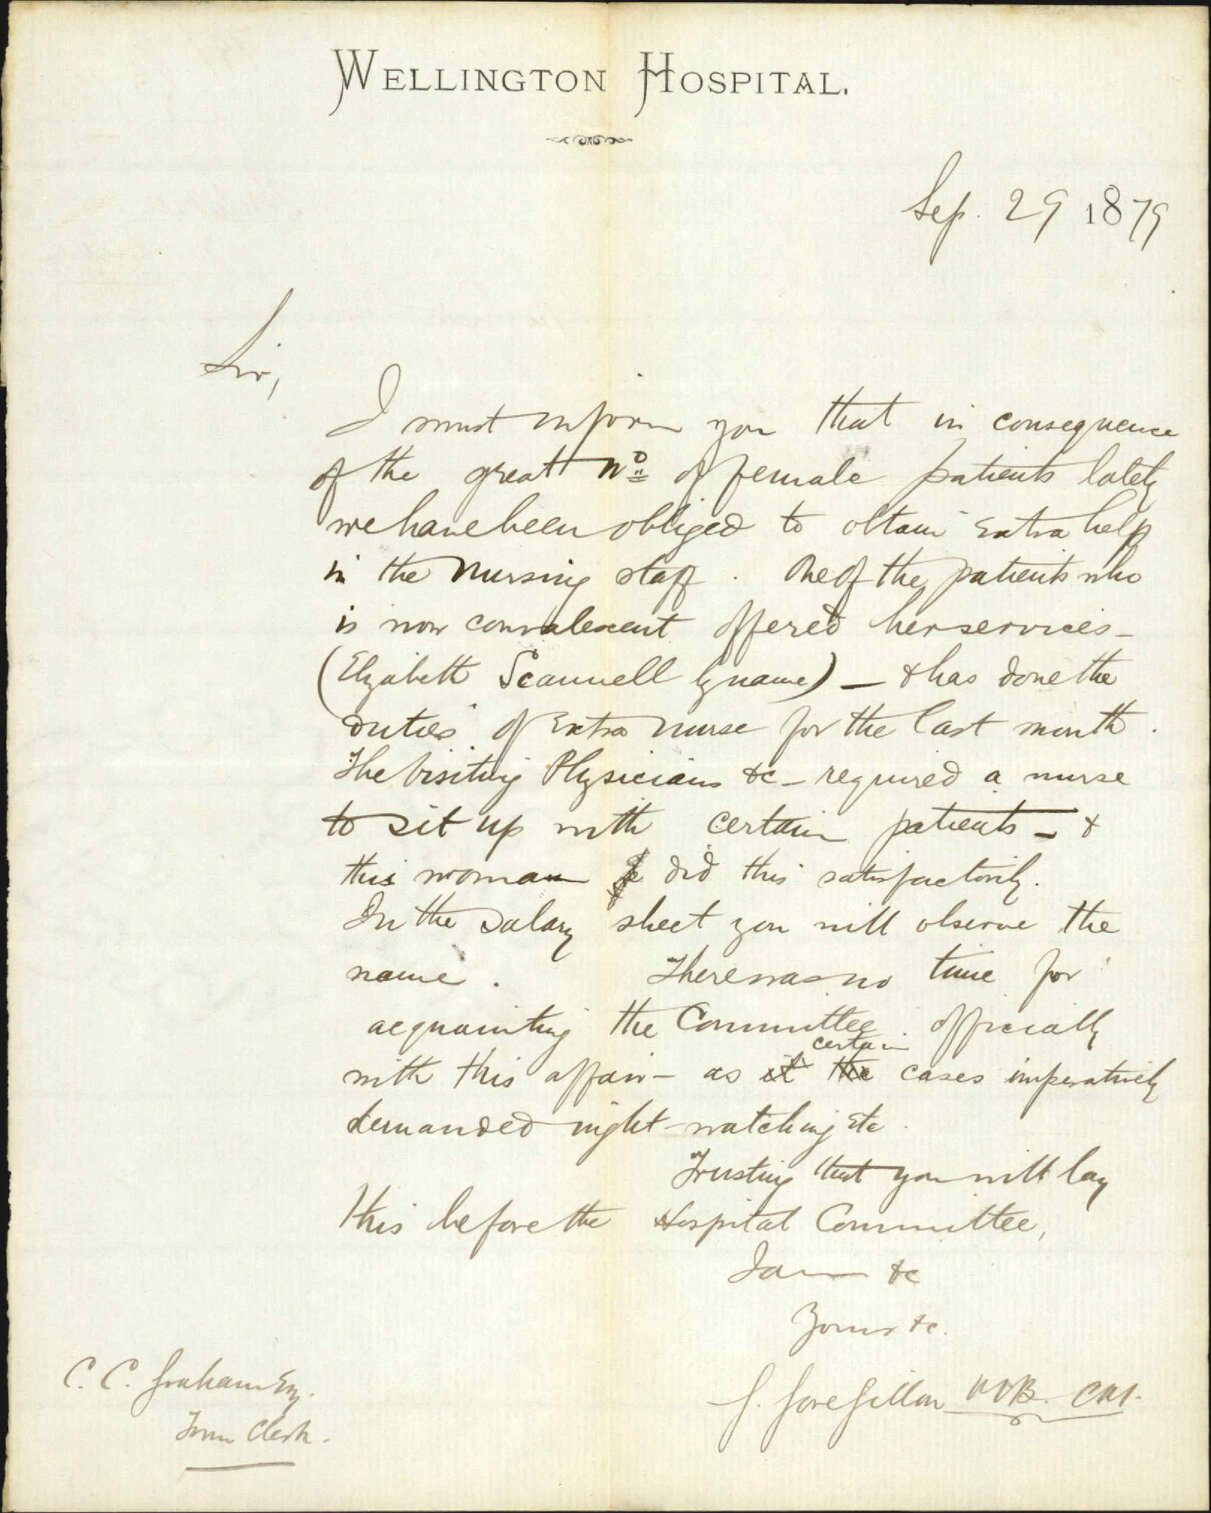 WELLINGTON HOSPITAL.
Sep. 29 1879
Sir,
I must inform you that in consequence
of the great No of female patients lately
we have been obliged to obtain extra help
in the Nursing staff. One of the patients who
is now convalescent offered her services -
(Elizabeth Scannell by name) - & has done the
duties of Extra Nurse for the last month.
The Visiting Physicians &c - required a nurse
to sit up with certain patients - &
this woman did this satisfactorily.
In the Salary sheet you will observe the
name. There was no time for
acquainting the Committee officially
certain
with this affair - as it the cases imperatively
demanded night-watching etc.
Trusting that you will lay
this before the Hospital Committee,
I am &c
Yours &c.
C. C. Graham Esq.
J. Gore Gillon M.B. C.M.
Town Clerk.